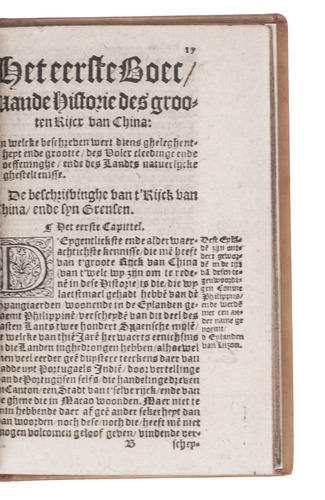 17
Het eerste Boec/
vande Historie des groo-
ten Rijcx van China:
In welcke beschreven wert diens gheleghent-
heyt ende grootte/des Volcx cleedinge ende
oeffeninghe/ende des Landts natuerlijcke
ghesteltenisse.
De beschrijvinghe van t'Rijck van
China/ende syn Grensen.
¶ Het eerste Capittel.
DEygentlickste ende alder waer-
achtichste kennisse, die mē heeft
van t'groote Rijck van China
(van t'welc wy zijn om te rede-
nē in dese Historie) is die/die wy
laetstmael gehadt hebbē van dē
Spangiaerden woonende in de Eylanden ge-
naemt Philippinē/verscheydē van dit deel des
vasten Lants twee hondert Spaensche mijlē/
te welcke van this Jaer herwaerts
in die Landen inghedrongen hebben/alhoewel
men veel eerder geē duystere teeckens daer van
hadde uyt Portugaels Indiē/door vertellinge
van de Portugysen selfs/die handelinge dreven
in Canton/een Stadt van t'selve rijck/ende van
de ghene die in Macao woonden. Maer niet te
min hebbende daer af geē ander seker heyt dan
van woorden/noch dese/noch die/heeft mē niet
mogen volcomen geloof geven/vindende ver-
B schey-
Dese Eylā-
dē zijn onde
in de tijt
vā desen te-
genwoordi-
gen Comme
Philippus/
ende werdē
met een an-
der name ge
noemt/
d'Eylanden
van Luzon.